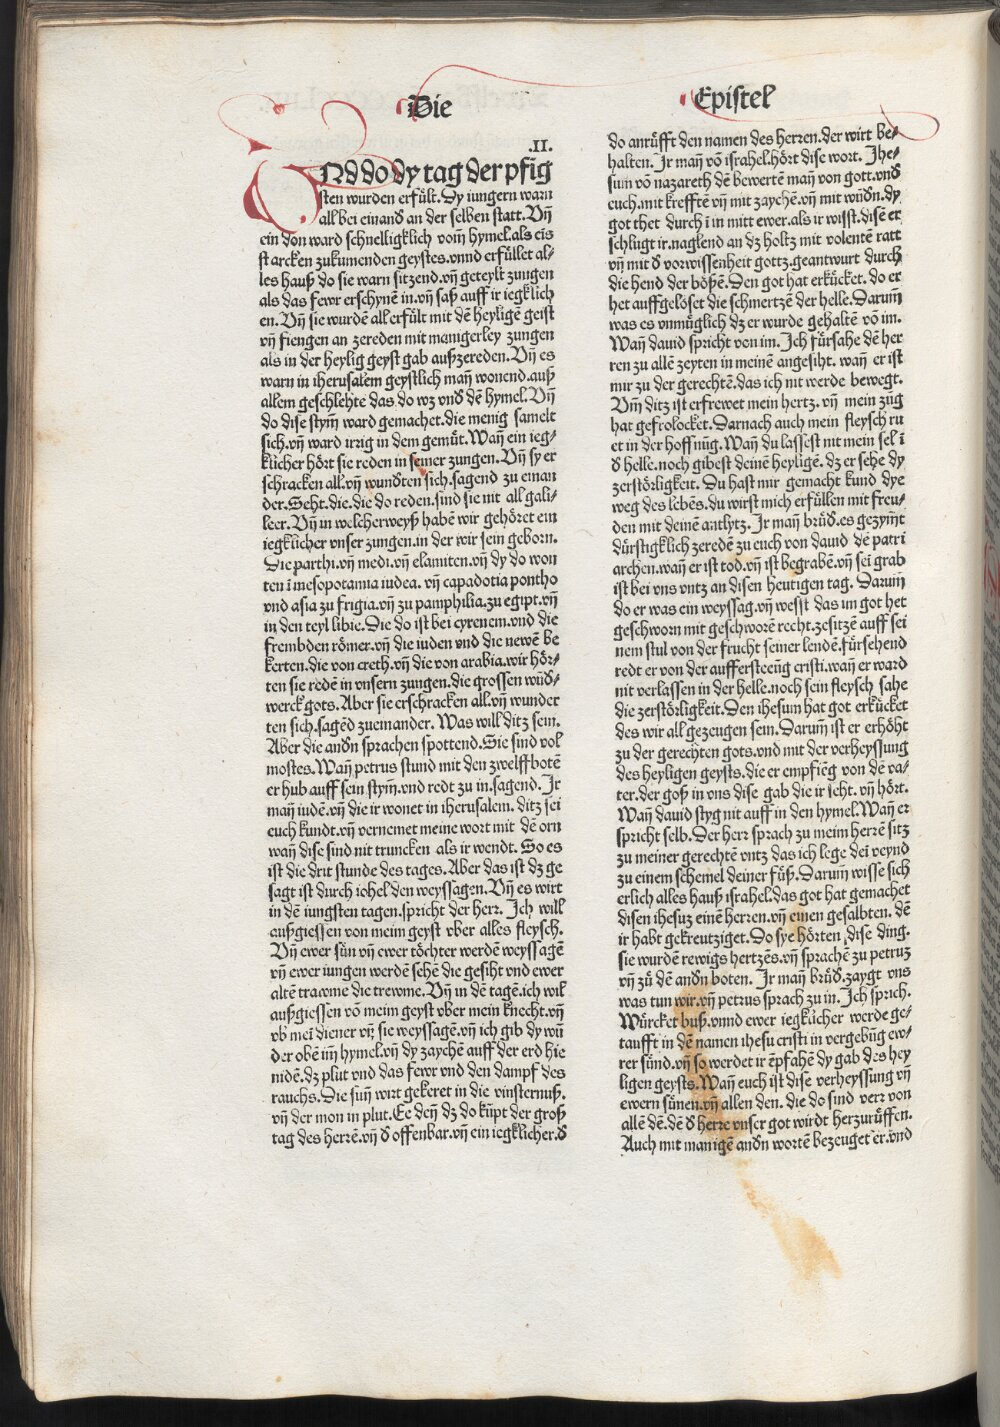 Die
Epistel
.II.
VNd do dy tag der pfīg
sten wurden erfült. Dy iungern warn
all bei einand̄ an der selben statt. Vn̄
ein don ward schnelligklich voīm hymel. als eis
starcken zukumenden geystes. vnnd erfüllet al⸗
les hauß do sie warn sitzend. vn̄ geteylt zungen
als das fewr erschynē in. vn̄ saß auff ir iegklich
en. Vn̄ sie wurdē all erfült mit dē heyligē geist
vn̄ fiengen an zereden mit manigerley zungen
als in der heylig geyst gab außzereden. Vn̄ es
warn in iherusalem geystlich man̄ wonend. auß
allem geschlehte das do wz vnd̄ dē hymel. Vn̄
do dise stym̄ ward gemachet. die menig samelt
sich. vn̄ ward irrig in dem gemüt. Wan̄ ein ieg⸗
klicher hört sie reden in seiner zungen. Vn̄ sy er
schracken all. vn̄ wundrten sich. sagend zu einan
der. Seht. die. die do reden. sind sie nit all gali⸗
leer. Vn̄ in welcherweyß habē wir gehöret ein
iegklicher vnser zungen. in der wir sein geborn.
Die parthi. vn̄ medi. vn̄ elamiten. vn̄ dy do won
ten ī mesopotamia iudea. vn̄ capadotia pontho
vnd asia zu frigia. vn̄ zu pamphilia. zu egipt. vn̄
in den teyl libie. Die do ist bei cyrenem. vnd die
frembden römer. vn̄ die iuden vnd die newē be
kerten. die von creth. vn̄ die von arabia. wir hör⸗
ten sie redē in vnsern zungen. die grossen wūd̄⸗
werck gots. Aber sie erschracken all. vn̄ wunder
ten sich. sagēd zueinander. Was will ditz sein.
Aber die andn̄ sprachen spottend. Sie sind vol
mostes. Wan̄ petrus stund mit den zwelffbotē
er hub auff sein stym̄. vnd redt zu in. sagend. Ir
man̄ iudē. vn̄ die ir wonet in iherusalem. ditz sei
euch kundt. vn̄ vernemet meine wort mit dē orn
wan̄ dise sind nit truncken als ir wendt. So es
ist die drit stunde des tages. Aber das ist dz ge
sagt ist durch iohel den weyssagen. Vn̄ es wirt
in dē iungsten tagen. spricht der herr. Ich will
außgiessen von meim geyst vber alles fleysch.
Vn̄ ewer sün vn̄ ewer töchter werdē weyssagē
vn̄ ewer iungen werdē sehē die gesiht vnd ewer
altē trawme die trewme. Vn̄ in dē tagē. ich wil
außgiessen vō meim geyst vber mein knecht. vn̄
vb mei diener vn̄ sie weyssagē. vn̄ ich gib dy wū
der obē im̄ hymel. vn̄ dy zaychē auff der erd hie
nidē. dz plut vnd das fewr vnd den dampf des
rauchs. Die sun̄ wirt gekeret in die vinsternuß.
vn̄ der mon in plut. Ee den̄ dz do kūpt der groß
tag des herrē. vn̄ d̄ offenbar. vn̄ ein iegklicher. d̄
do anrüfft den namen des herren. der wirt be⸗
halten. Ir man̄ vō israhel. hört dise wort. Ihe⸗
sum vō nazareth dē bewertē man̄ von gott. vnd̄
euch. mit krefftē vn̄ mit zaychē. vn̄ mit wūdn̄. dy
got thet durch ī in mitt ewer. als ir wisst. disē er
schlugt ir. naglend an dz holtz mit volentē ratt
vn̄ mit d̄ vorwissenheit gottz. geantwurt durch
die hend der bößē. Den got hat erkücket. do er
het auffgelöset die schmertzē der helle. Darum̄
was es vnmüglich dz er wurde gehaltē vō im.
Wan̄ dauid spricht von im. Ich fürsahe dē her
ren zu allē zeyten in meinē angesiht. wan̄ er ist
mir zu der gerechtē. das ich nit werde bewegt.
Vm̄ ditz ist erfrewet mein hertz. vn̄ mein zūg
hat gefrolocket. Darnach auch mein fleysch ru
et in der hoffnūg. Wan̄ du lassest nit mein sel ī
d̄ helle. noch gibest deinē heyligē. dz er sehe dy
zerstörligkeit. Du hast mir gemacht kund dye
weg des lebēs. du wirst mich erfüllen mit freu⸗
den mit deinē antlytz. Ir man̄ brüd̄. es gezym̄t
dürstigklich zeredē zu euch von dauid dē patri
archen. wan̄ er ist tod. vn̄ ist begrabē. vn̄ sei grab
ist bei vns vntz an disen heutigen tag. Darum̄
do er was ein weyssag. vn̄ wesst das im got het
geschworn mit geschworē recht. zesitzē auff sei
nem stul von der frucht seiner lendē. fürsehend
redt er von der aufferstceūg cristi. wan̄ er ward
nit verlassen in der helle. noch sein fleysch sahe
die zerstörligkeit. Den ihesum hat got erkücket
des wir all gezeugen sein. Darum̄ ist er erhöht
zu der gerechten gots. vnd mit der verheyssung
des heyligen geysts. die er empfieng von dē va⸗
ter. der goß in vns dise gab die ir seht. vn̄ hört.
Wan̄ dauid styg nit auff in den hymel. Wan̄ er
spricht selb. Der herr sprach zu meim herrē sitz
zu meiner gerechtē vntz das ich lege dei veynd
zu einem schemel deiner füß. Darum̄ wisse sich
erlich alles hauß israhel. das got hat gemachet
disen ihesuz einē herren. vn̄ einen gesalbten. dē
ir habt gekreutziget. Do sye hörten dise ding.
sie wurdē rewigs hertzēs. vn̄ sprachē zu petruz
vn̄ zů dē andn̄ boten. Ir man̄ brüd̄. zaygt vns
was tun wir. vn̄ petrus sprach zu in. Ich sprich.
Würcket buß. vnnd ewer iegklicher werde ge⸗
taufft in dē namen ihesu cristi in vergebūg ew⸗
rer sünd. vn̄ so werdet ir ēpfahē dy gab des hey
ligen geysts. Wan̄ euch ist dise verheyssung vn̄
ewern sünen. vn̄ allen den. die do sind verr von
allē dē. dē d̄ herre vnser got wirdt herzurüffen.
Auch mit manigē andn̄ wortē bezeuget er. vnd